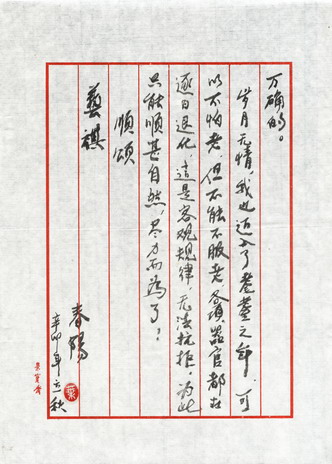 万确的。
岁月无情，我也迈入了耄耋之年，可
以不怕老，但不能不服老，各项器官都在
逐日退化，这是客观规律，无法抗拒，为此
只能顺其自然，尽力而为了！
顺颂
艺祺
春阳
辛卯年立秋